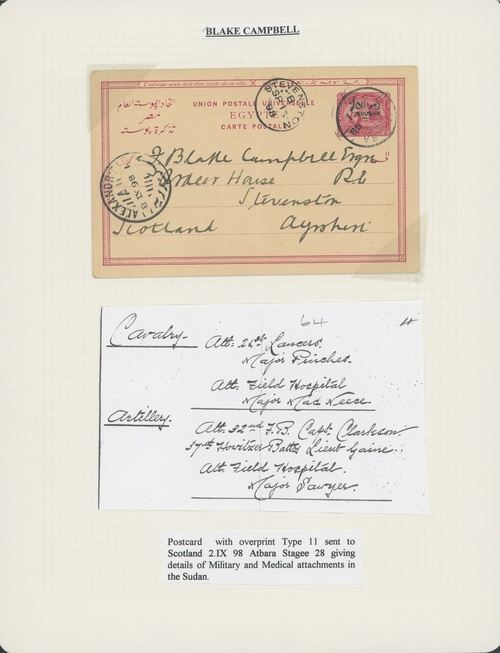 BLAKE CAMPBELL
L'adresse seule doit être écrite de ce côté
UNION POSTALE UNIVERSELLE
EGYPTE
CARTE POSTALE
اتحاد البوستة العام
مصر
تذكرة بوستة
STEVENSTON
SP 15
98
SOUDAN
السودان
ALEXANDRI
8 IX 98
J Blake Campbell Esqre
House
Stevenston
Ayrshire
Scotland
64
Cavalry.
Att: 21st Lancers.
Major Pinches.
Att. Field Hospital
Major Mac Neece
Artillery.
Att. 32nd F.B. Capt. Clarkson
37th Howitzer Batty Lieut
Att. Field Hospital.
Major Sawyer.
Postcard with overprint Type 11 sent to
Scotland 2.IX 98 Atbara Stagee 28 giving
details of Military and Medical attachments in
the Sudan.